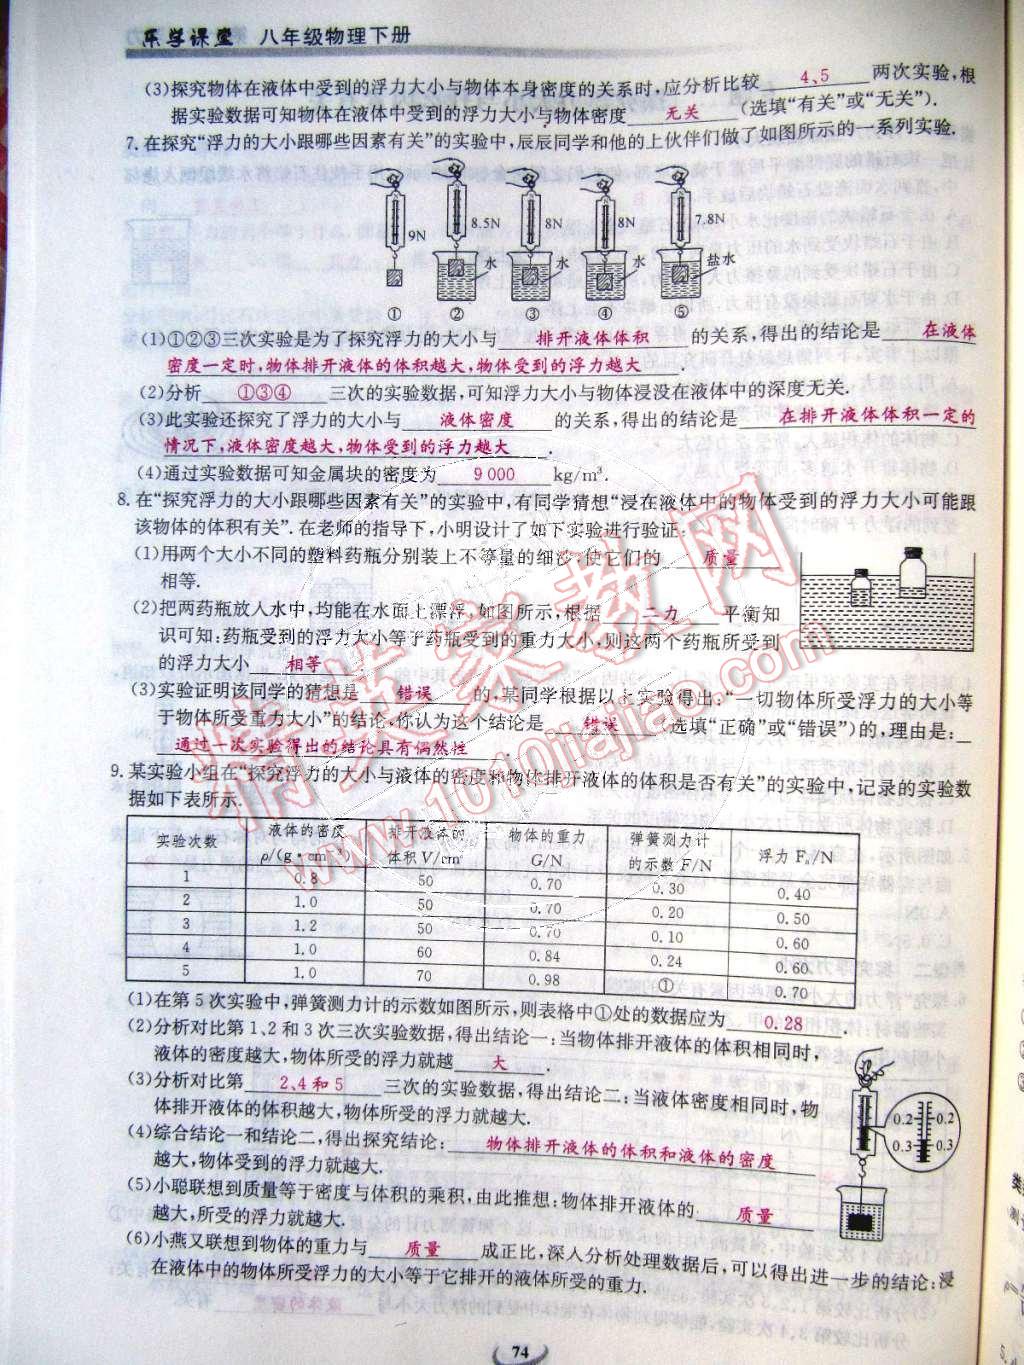 乐学课堂 八年级物理下册
(3)探究物体在液体中受到的浮力大小与物体本身密度的关系时,应分析比较 4、5 两次实验,根
据实验数据可知物体在液体中受到的浮力大小与物体密度 无关 (选填“有关”或“无关”).
7.在探究“浮力的大小跟哪些因素有关”的实验中,辰辰同学和他的上伙伴们做了如图所示的一系列实验.
9N 8.5N 8N 8N 7.8N
水 水 水 盐水
① ② ③ ④ ⑤
(1)①②③三次实验是为了探究浮力的大小与 排开液体体积 的关系,得出的结论是 在液体
密度一定时,物体排开液体的体积越大,物体受到的浮力越大 .
(2)分析 ①③④ 三次的实验数据,可知浮力大小与物体浸没在液体中的深度无关.
(3)此实验还探究了浮力的大小与 液体密度 的关系,得出的结论是 在排开液体体积一定的
情况下,液体密度越大,物体受到的浮力越大 .
(4)通过实验数据可知金属块的密度为 9 000 kg/m³.
8.在“探究浮力的大小跟哪些因素有关”的实验中,有同学猜想“浸在液体中的物体受到的浮力大小可能跟
该物体的体积有关”.在老师的指导下,小明设计了如下实验进行验证:
(1)用两个大小不同的塑料药瓶分别装上不等量的细沙,使它们的 质量
相等.
(2)把两药瓶放入水中,均能在水面上漂浮,如图所示,根据 二力 平衡知
识可知:药瓶受到的浮力大小等于药瓶受到的重力大小,则这两个药瓶所受到
的浮力大小 相等 .
(3)实验证明该同学的猜想是 错误 的,某同学根据以上实验得出:“一切物体所受浮力的大小等
于物体所受重力大小”的结论,你认为这个结论是 错误 (选填“正确”或“错误”)的,理由是:
通过一次实验得出的结论具有偶然性 .
9.某实验小组在“探究浮力的大小与液体的密度和物体排开液体的体积是否有关”的实验中,记录的实验数
据如下表所示.
实验次数 液体的密度 ρ/(g·cm⁻³) 排开液体的体积 V/cm³ 物体的重力 G/N 弹簧测力计的示数 F/N 浮力 F浮/N
1 0.8 50 0.70 0.30 0.40
2 1.0 50 0.70 0.20 0.50
3 1.2 50 0.70 0.10 0.60
4 1.0 60 0.84 0.24 0.60
5 1.0 70 0.98 ① 0.70
(1)在第5次实验中,弹簧测力计的示数如图所示,则表格中①处的数据应为 0.28 .
(2)分析对比第1、2和3次三次实验数据,得出结论一:当物体排开液体的体积相同时,
液体的密度越大,物体所受的浮力就越 大 .
(3)分析对比第 2、4和5 三次的实验数据,得出结论二:当液体密度相同时,物
体排开液体的体积越大,物体所受的浮力就越大.
(4)综合结论一和结论二,得出探究结论: 物体排开液体的体积和液体的密度
越大,物体受到的浮力就越大.
(5)小聪联想到质量等于密度与体积的乘积,由此推想:物体排开液体的 质量
越大,所受的浮力就越大.
(6)小燕又联想到物体的重力与 质量 成正比,深入分析处理数据后,可以得出进一步的结论:浸
在液体中的物体所受浮力的大小等于它排开的液体所受的重力.
0.2 0.2
0.3 0.3
74
精英家教网
www.1010jiajiao.com